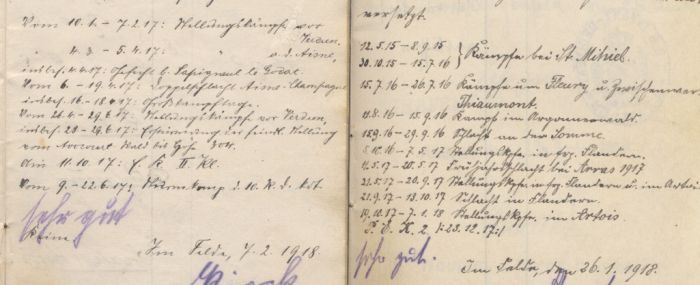 Vom 10.1. – 7.2.17: Stellungskämpfe vor Verdun,
" 4.3. – 5.4.17: " a. d. Aisne,
insbes. 4.4.17: Gefecht b. Sapigneul
Vom 6. – 19.4.17: Doppelschlacht Aisne-Champagne
insbes. 16 – 18.4.17:
Vom 26.4 – 29.6.17: Stellungskämpfe vor Verdun,
insbes. 28 – 29.6.17: Erstürmung der feindl. Stellung
vom Avocourt Wald bis Höhe 304.
Am 10.10.17: E. K. II. Kl.
Vom 9. – 22.6.17:
sehr gut
Im Felde, 7.2.1918.
versetzt.
12.5.15 – 8.9.15
30.10.15 – 15.7.16 } Kämpfe bei St. Mihiel.
15.7.16 – 26.7.16 Kämpfe um Fleury u. Zwischenwerk
Thiaumont.
11.8.16 – 15.9.16 Kämpfe im Argonnerwald.
15.9.16 – 29.9.16 Schlacht an der Somme.
5.10.16 – 7.5.17 Stellungskpfe. in frz. Flandern.
11.5.17 – 20.5.17 Frühjahrsschlacht bei Arras 1917
21.5.17 – 20.9.17 Stellungskpfe. in frz. Flandern u. im Artois
21.9.17 – 13.10.17 Schlacht in Flandern.
14.10.17 – 7.1.18 Stellungskpfe. im Artois.
23.12.17:/
sehr gut.
Im Felde, den 26.1.1918.